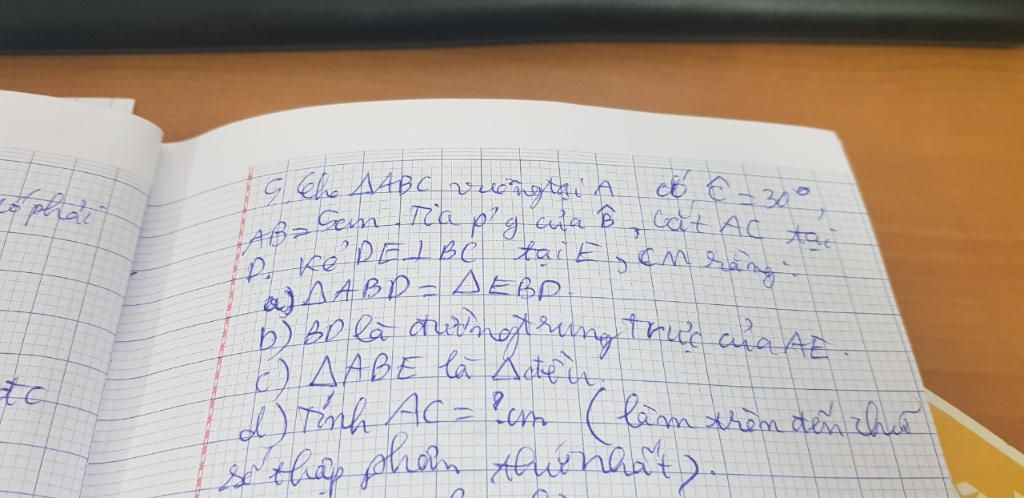 có phải
tc
5. Cho ΔABC vuông tại A có Ĉ = 30°,
AB = 5cm. Tia p'g của B̂, cắt AC tại
D. Kẻ DE⊥BC tại E, CM rằng:
a) ΔABD = ΔEBD.
b) BD là đường trung trực của AE.
c) ΔABE là Δđều.
d) Tính AC = ?cm (làm tròn đến chữ
số thập phân thứ nhất).